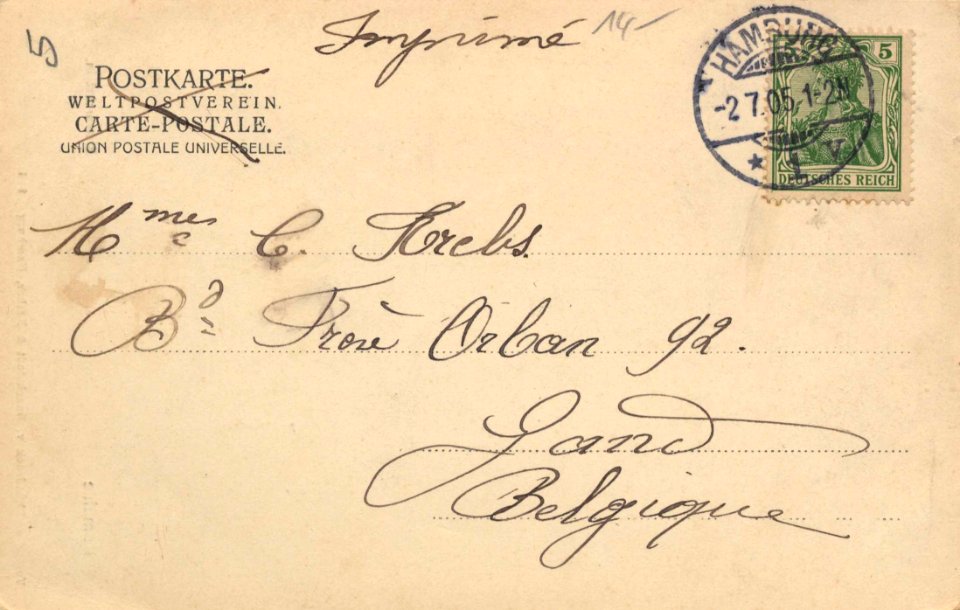 5
Imprimé 14-
POSTKARTE.
WELTPOSTVEREIN.
CARTE-POSTALE.
UNION POSTALE UNIVERSELLE.
HAMBURG
-2 7.05, 1-2N
* 1 V
5 5
DEUTSCHES REICH
Mmes C. Krebs.
Bd Frère Orban 92.
Gand
Belgique